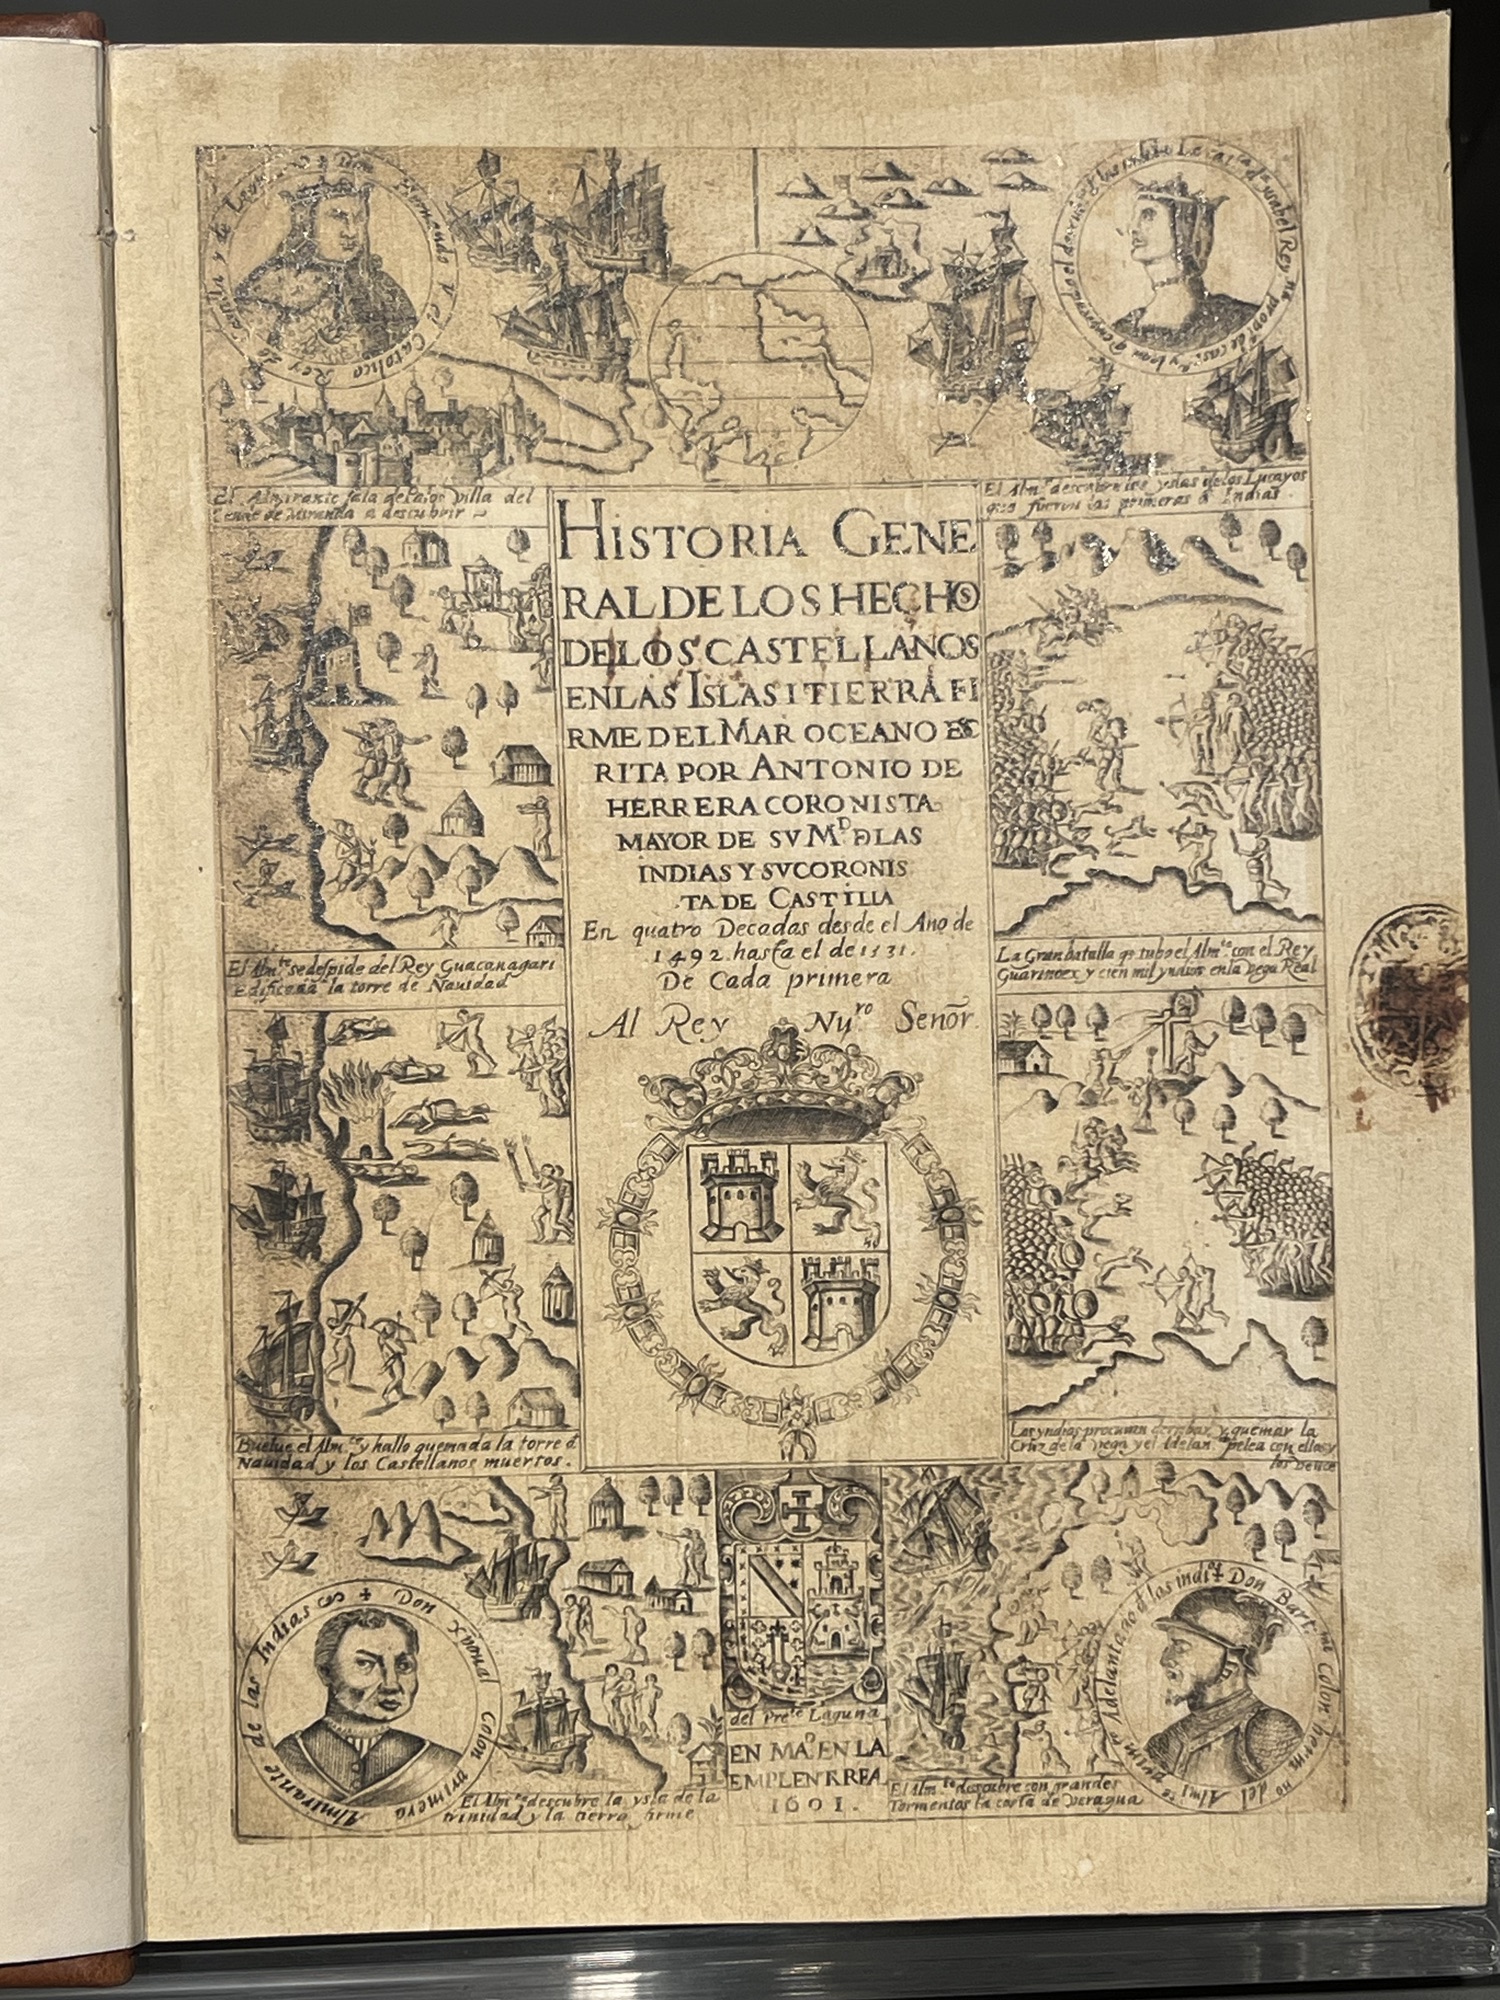 Don Fernando V el Catolico Rey de
El Almirante sale de Palos Villa del
Conde de Miranda a descubrir
El Alm.te descubre las yslas de los Lucayos
que fueron las primeras d Indias.
HISTORIA GENE
RAL DE LOS HECHOS
DE LOS CASTELLANOS
EN LAS ISLAS I TIERRA FI
RME DEL MAR OCEANO ESC
RITA POR ANTONIO DE
HERRERA CORONISTA
MAYOR DE SV M.D D LAS
INDIAS Y SV CORONIS
TA DE CASTILLA
En quatro Decadas desde el Año de
1492. hasta el de 1531.
De Cada primera
Al Rey Nu.ro Señor.
El Alm.te se despide del Rey Guacanagari
Edificada la torre de Nauidad
La Gran batalla q tubo el Alm.te con el Rey
Guarinoex y cien mil yndios en la Vega Real
Buelue el Alm.te y hallo quemada la torre d
Nauidad y los Castellanos muertos.
Los yndios procuran derribar y quemar la
Cruz de la Vega y el Adelan.do pelea con ellos y
los Vence
Don Xpoual Colon primero Almirante de las Indias
El Alm.te descubre la ysla de la
trinidad y la tierra firme
del Pres.te Laguna
EN MA.D EN LA
EMPLENTA REA
1601.
El Alm.te descubre con grandes
Tormentas la costa de Veragua
Don Bart.me Colon herm.no del Almi.te Adelantado d las indi.s